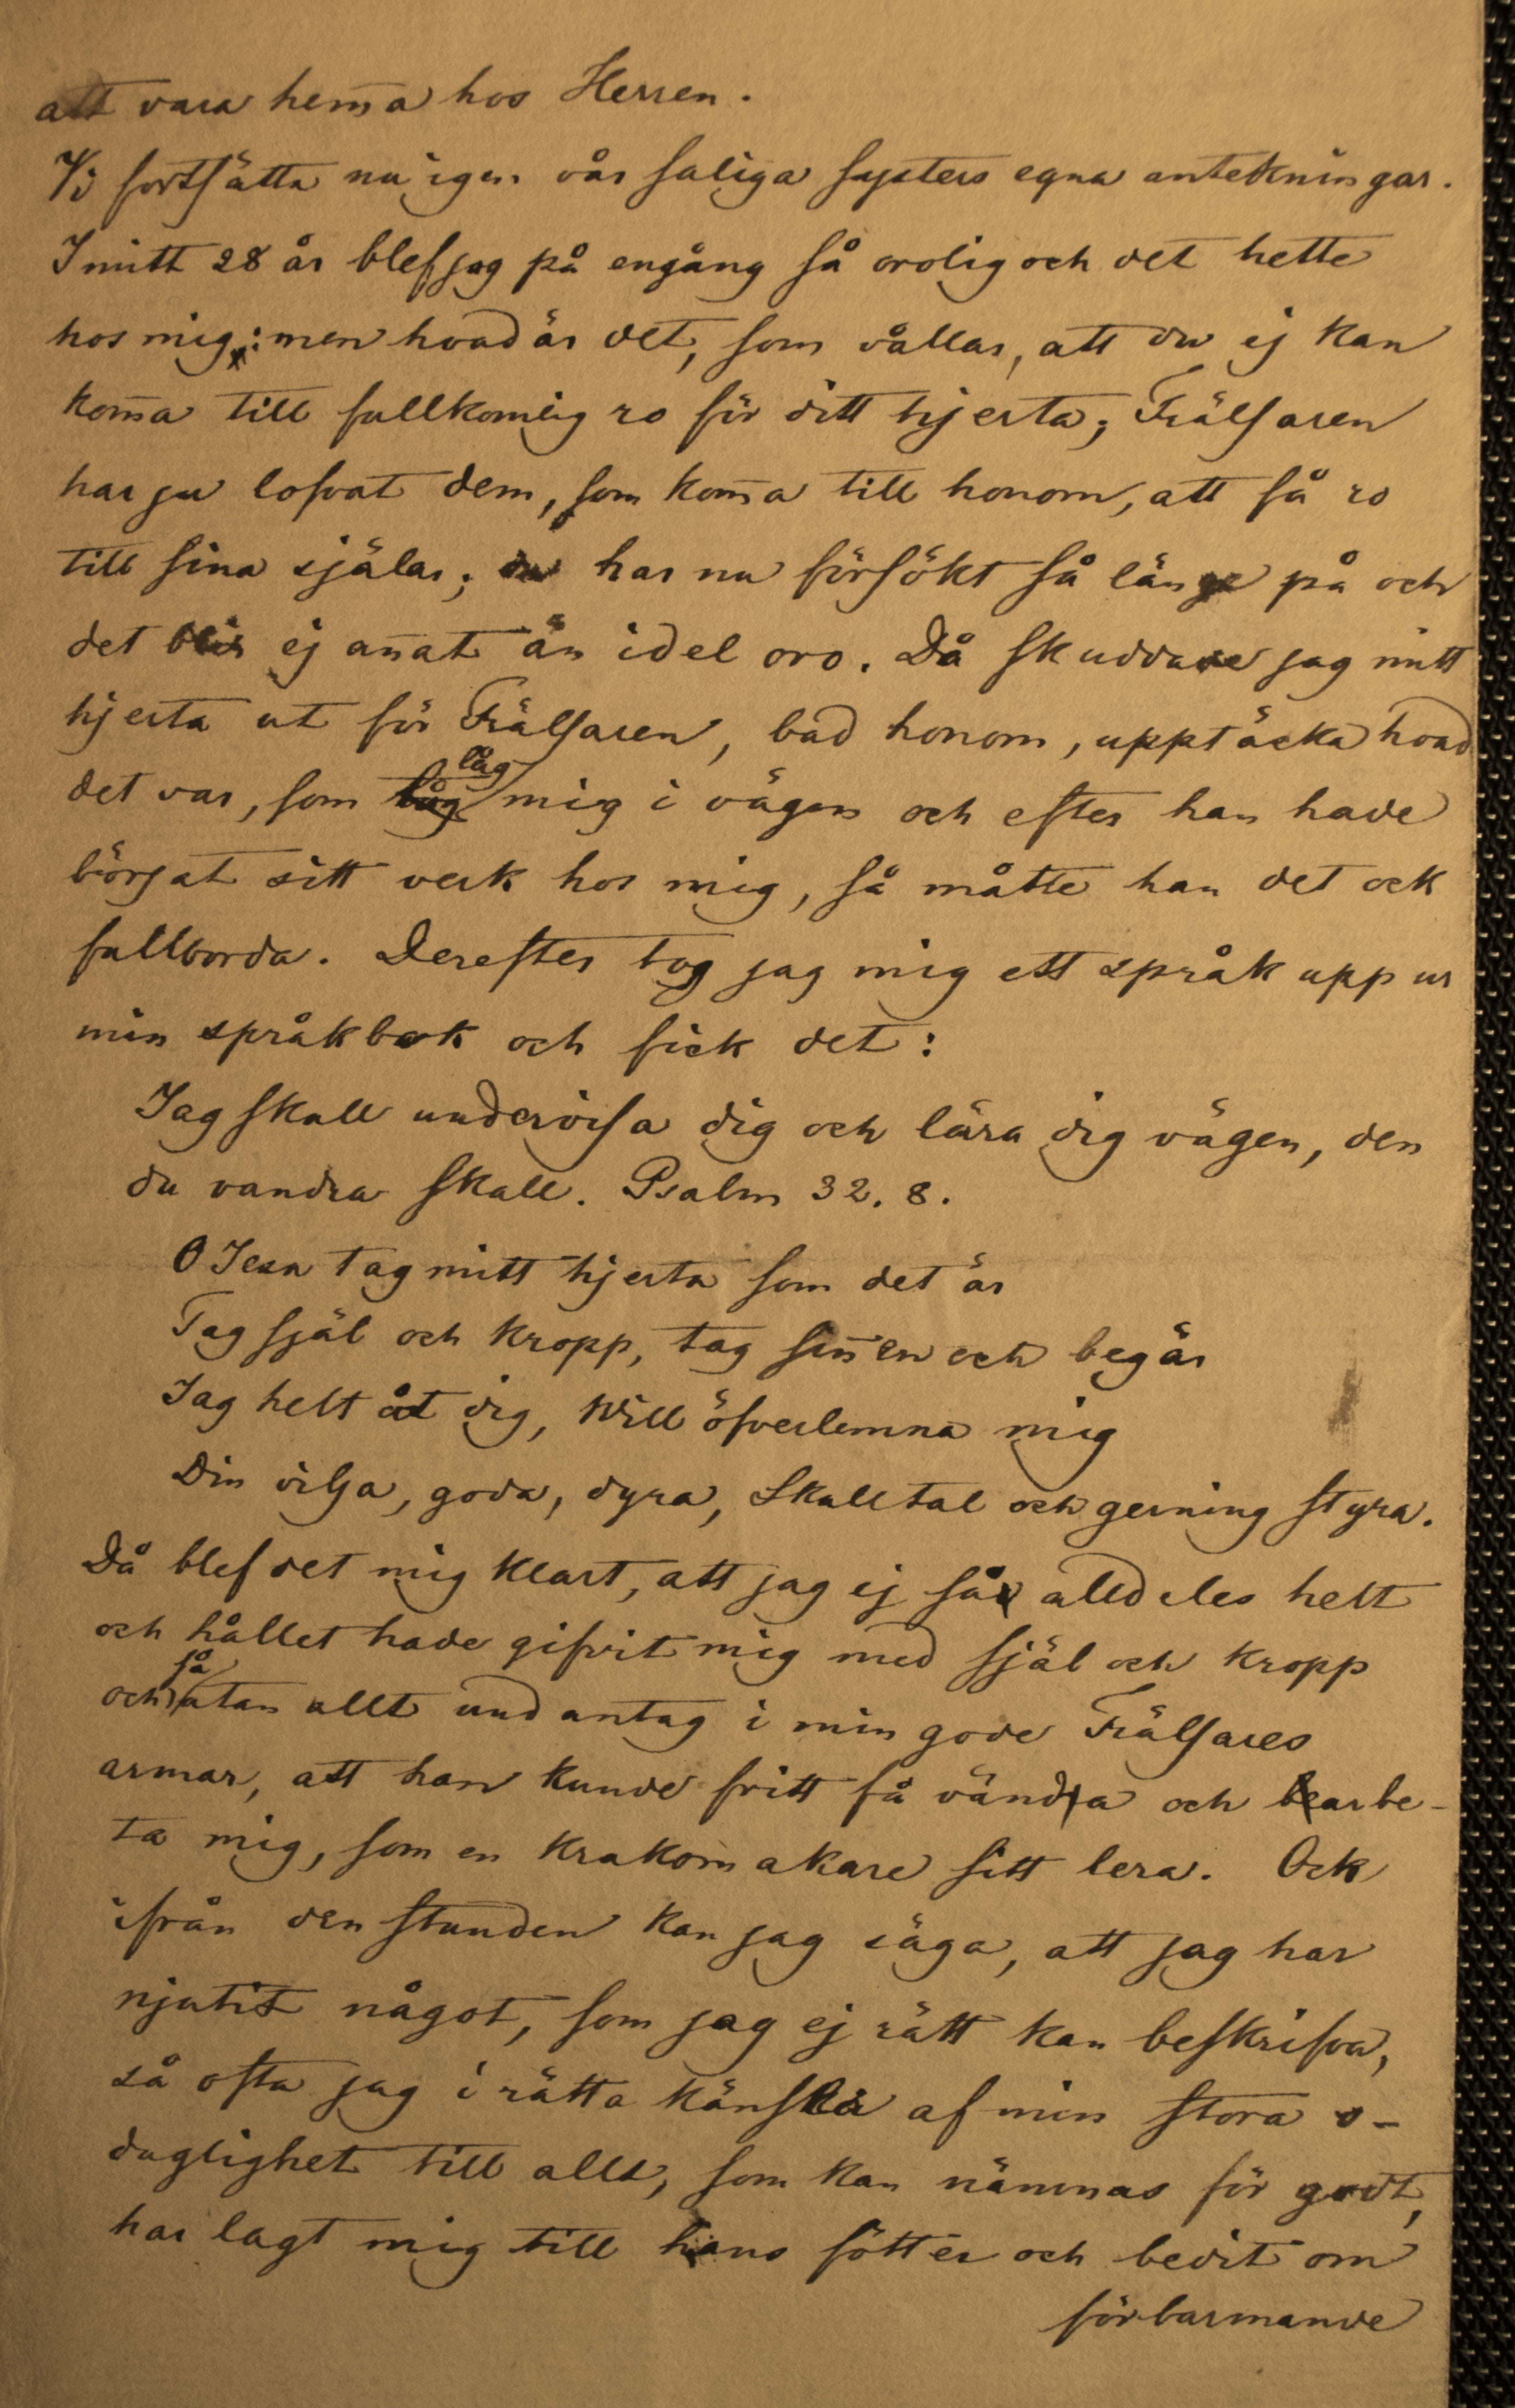 att vara hem̄a hos Herren.
Vi fortsätta nu igen vår saliga systers egna antekningar.
I mitt 28 år blef jag på engång så orolig och det hette
hos mig: men hvad är det, som vållar, att du ej kan
kom̄a till fullkomlig ro för ditt hjerta; Frälsaren
har ju lofvat dem, som kom̄a till honom, att få ro
till sina själar; du har nu försökt så länge på och
det blir ej an̄at än idel oro. Då skuddade jag mitt
hjerta ut för Frälsaren, bad honom, upptäcka hvad
det var, som låg mig i vägen och efter han hade
börjat sitt verk hos mig, så måtte han det ock
fullborda. Derefter tog jag mig ett språk upp ur
min språkbok och fick det:
Jag skall undervisa dig och lära dig vägen, den
du vandra skall. Psalm 32. 8.
O Jesu tag mitt hjerta som det är
Tag själ och kropp, tag sin̄en och begär
Jag helt åt dig, Will öfverlemna mig
Din vilja, goda, dyra, Skall tal och gerning styra.
Då blef det mig klart, att jag ej så alldeles helt
och hållet hade gifvit mig med själ och kropp
och så utan allt undantag i min gode Frälsares
armar, att han kunde fritt få vända och bearbe-
ta mig, som en krakomakare sitt lera. Ock
ifrån den stunden kan jag säga, att jag har
njutit något, som jag ej rätt kan beskrifva,
så ofta jag i rätta känsla af min stora o-
duglighet till allt, som kan nämnas för godt,
har lagt mig till hans fötter och bedit om
förbarmande